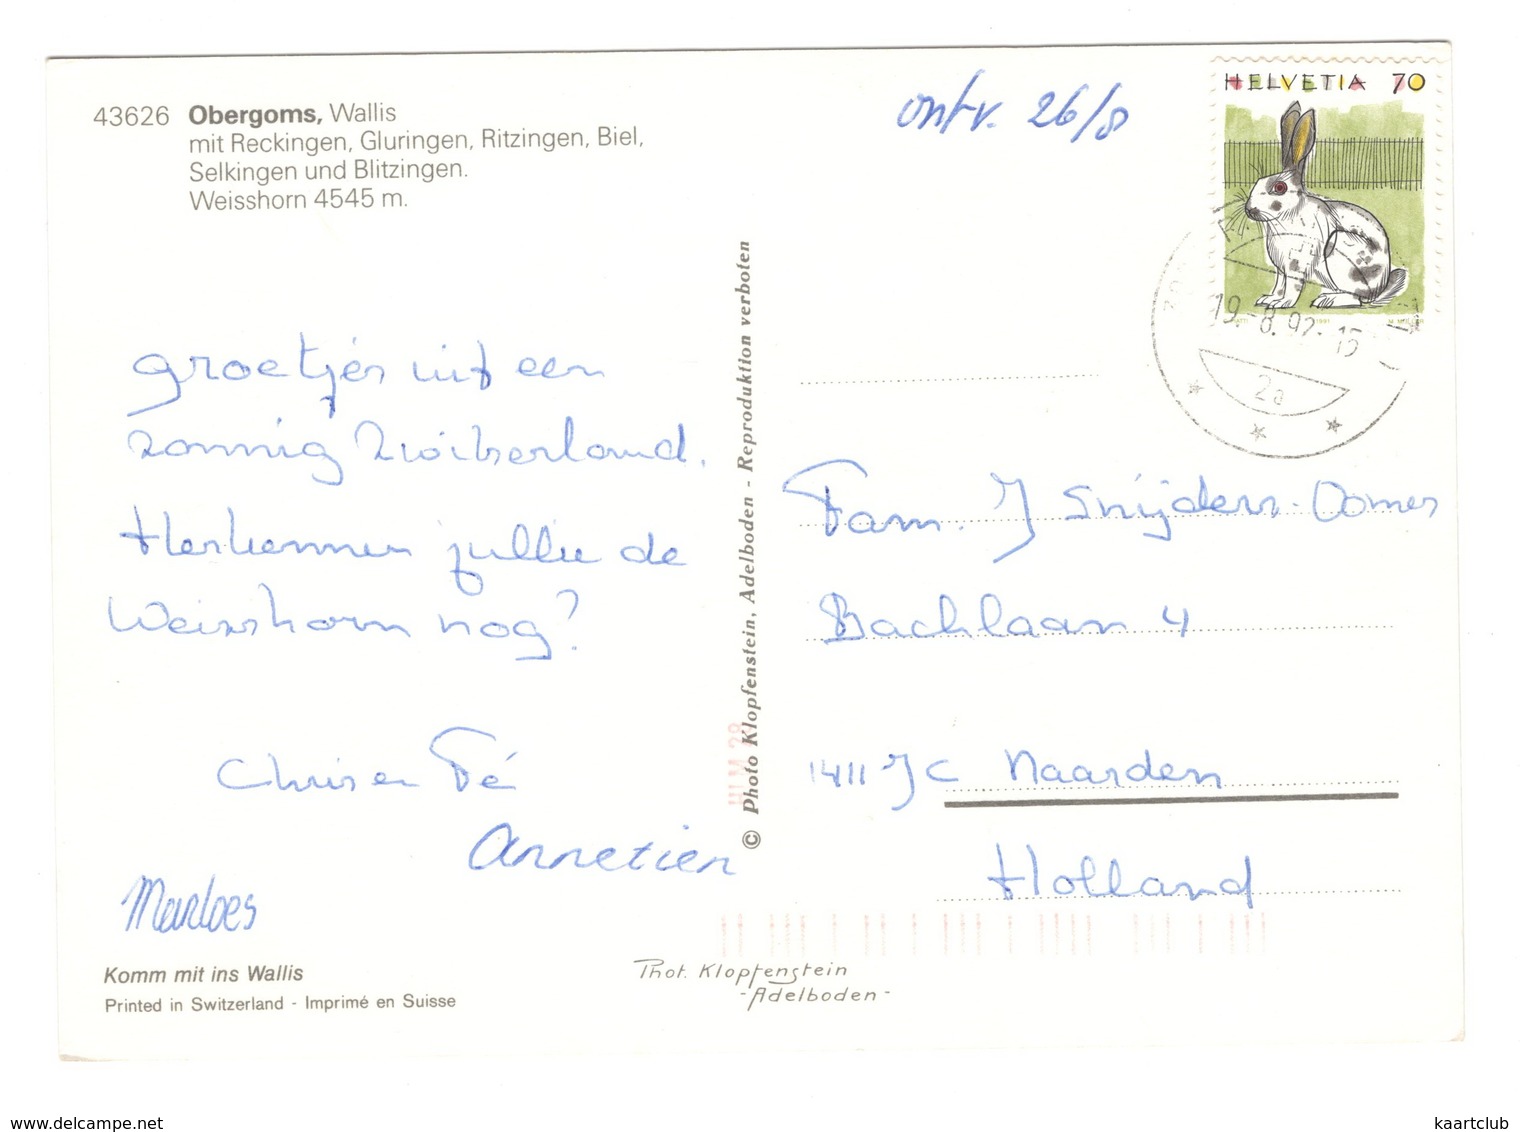 43626 Obergoms, Wallis
mit Reckingen, Gluringen, Ritzingen, Biel,
Selkingen und Blitzingen.
Weisshorn 4545 m.
ontv. 26/8
HELVETIA 70
1991
19-8.92-15
2a
groetjes uit een
zonnig Zwitserland.
Herkennen jullie de
Weisshorn nog?
Chris en Fé
Annetien
Marloes
© Photo Klopfenstein, Adelboden - Reproduktion verboten
Fam. J Snijders-Oomes
Bachlaan 4
1411 JC Naarden
Holland
Komm mit ins Wallis
Printed in Switzerland - Imprimé en Suisse
Phot. Klopfenstein
-Adelboden-
delcampe.net
kaartclub